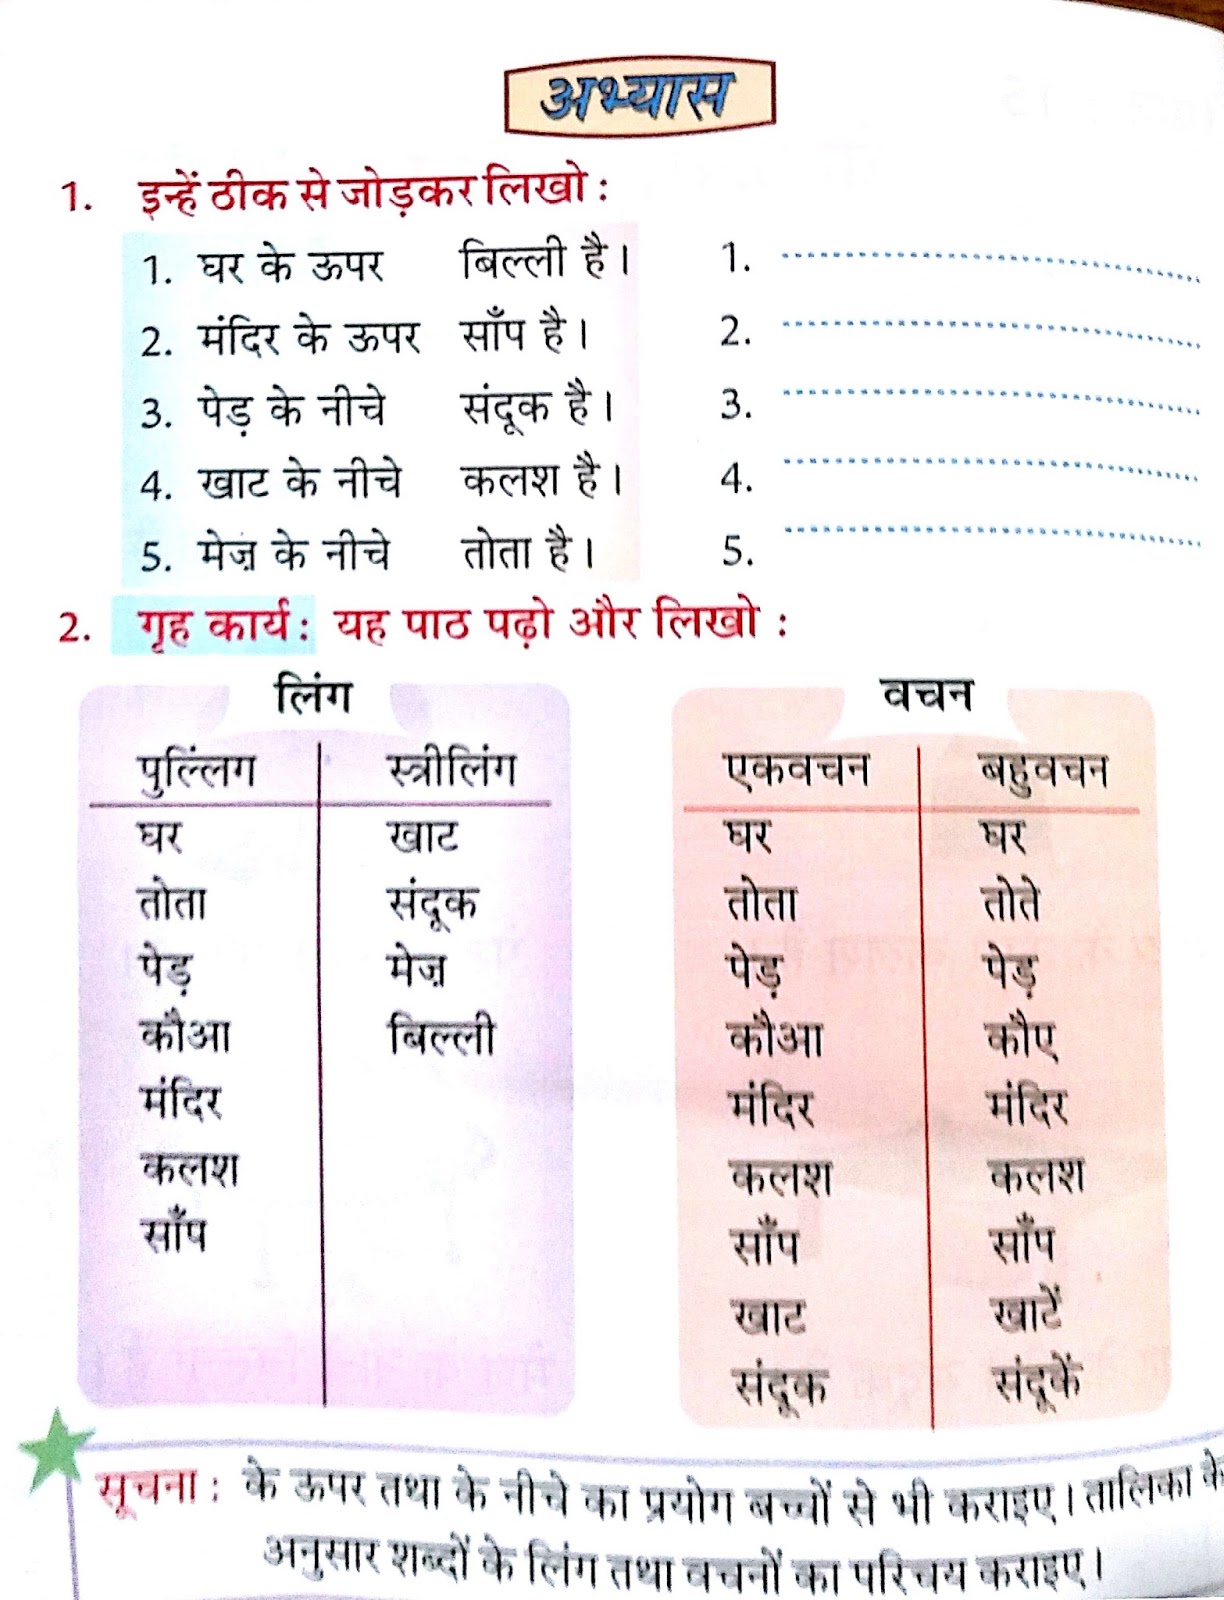 अभ्यास
1. इन्हें ठीक से जोड़कर लिखो :
1. घर के ऊपर बिल्ली है। 1.
2. मंदिर के ऊपर साँप है। 2.
3. पेड़ के नीचे संदूक है। 3.
4. खाट के नीचे कलश है। 4.
5. मेज़ के नीचे तोता है। 5.
2. गृह कार्य : यह पाठ पढ़ो और लिखो :
लिंग
पुल्लिंग स्त्रीलिंग
घर खाट
तोता संदूक
पेड़ मेज़
कौआ बिल्ली
मंदिर
कलश
साँप
वचन
एकवचन बहुवचन
घर घर
तोता तोते
पेड़ पेड़
कौआ कौए
मंदिर मंदिर
कलश कलश
साँप साँप
खाट खाटें
संदूक संदूकें
सूचना : के ऊपर तथा के नीचे का प्रयोग बच्चों से भी कराइए। तालिका के
अनुसार शब्दों के लिंग तथा वचनों का परिचय कराइए।